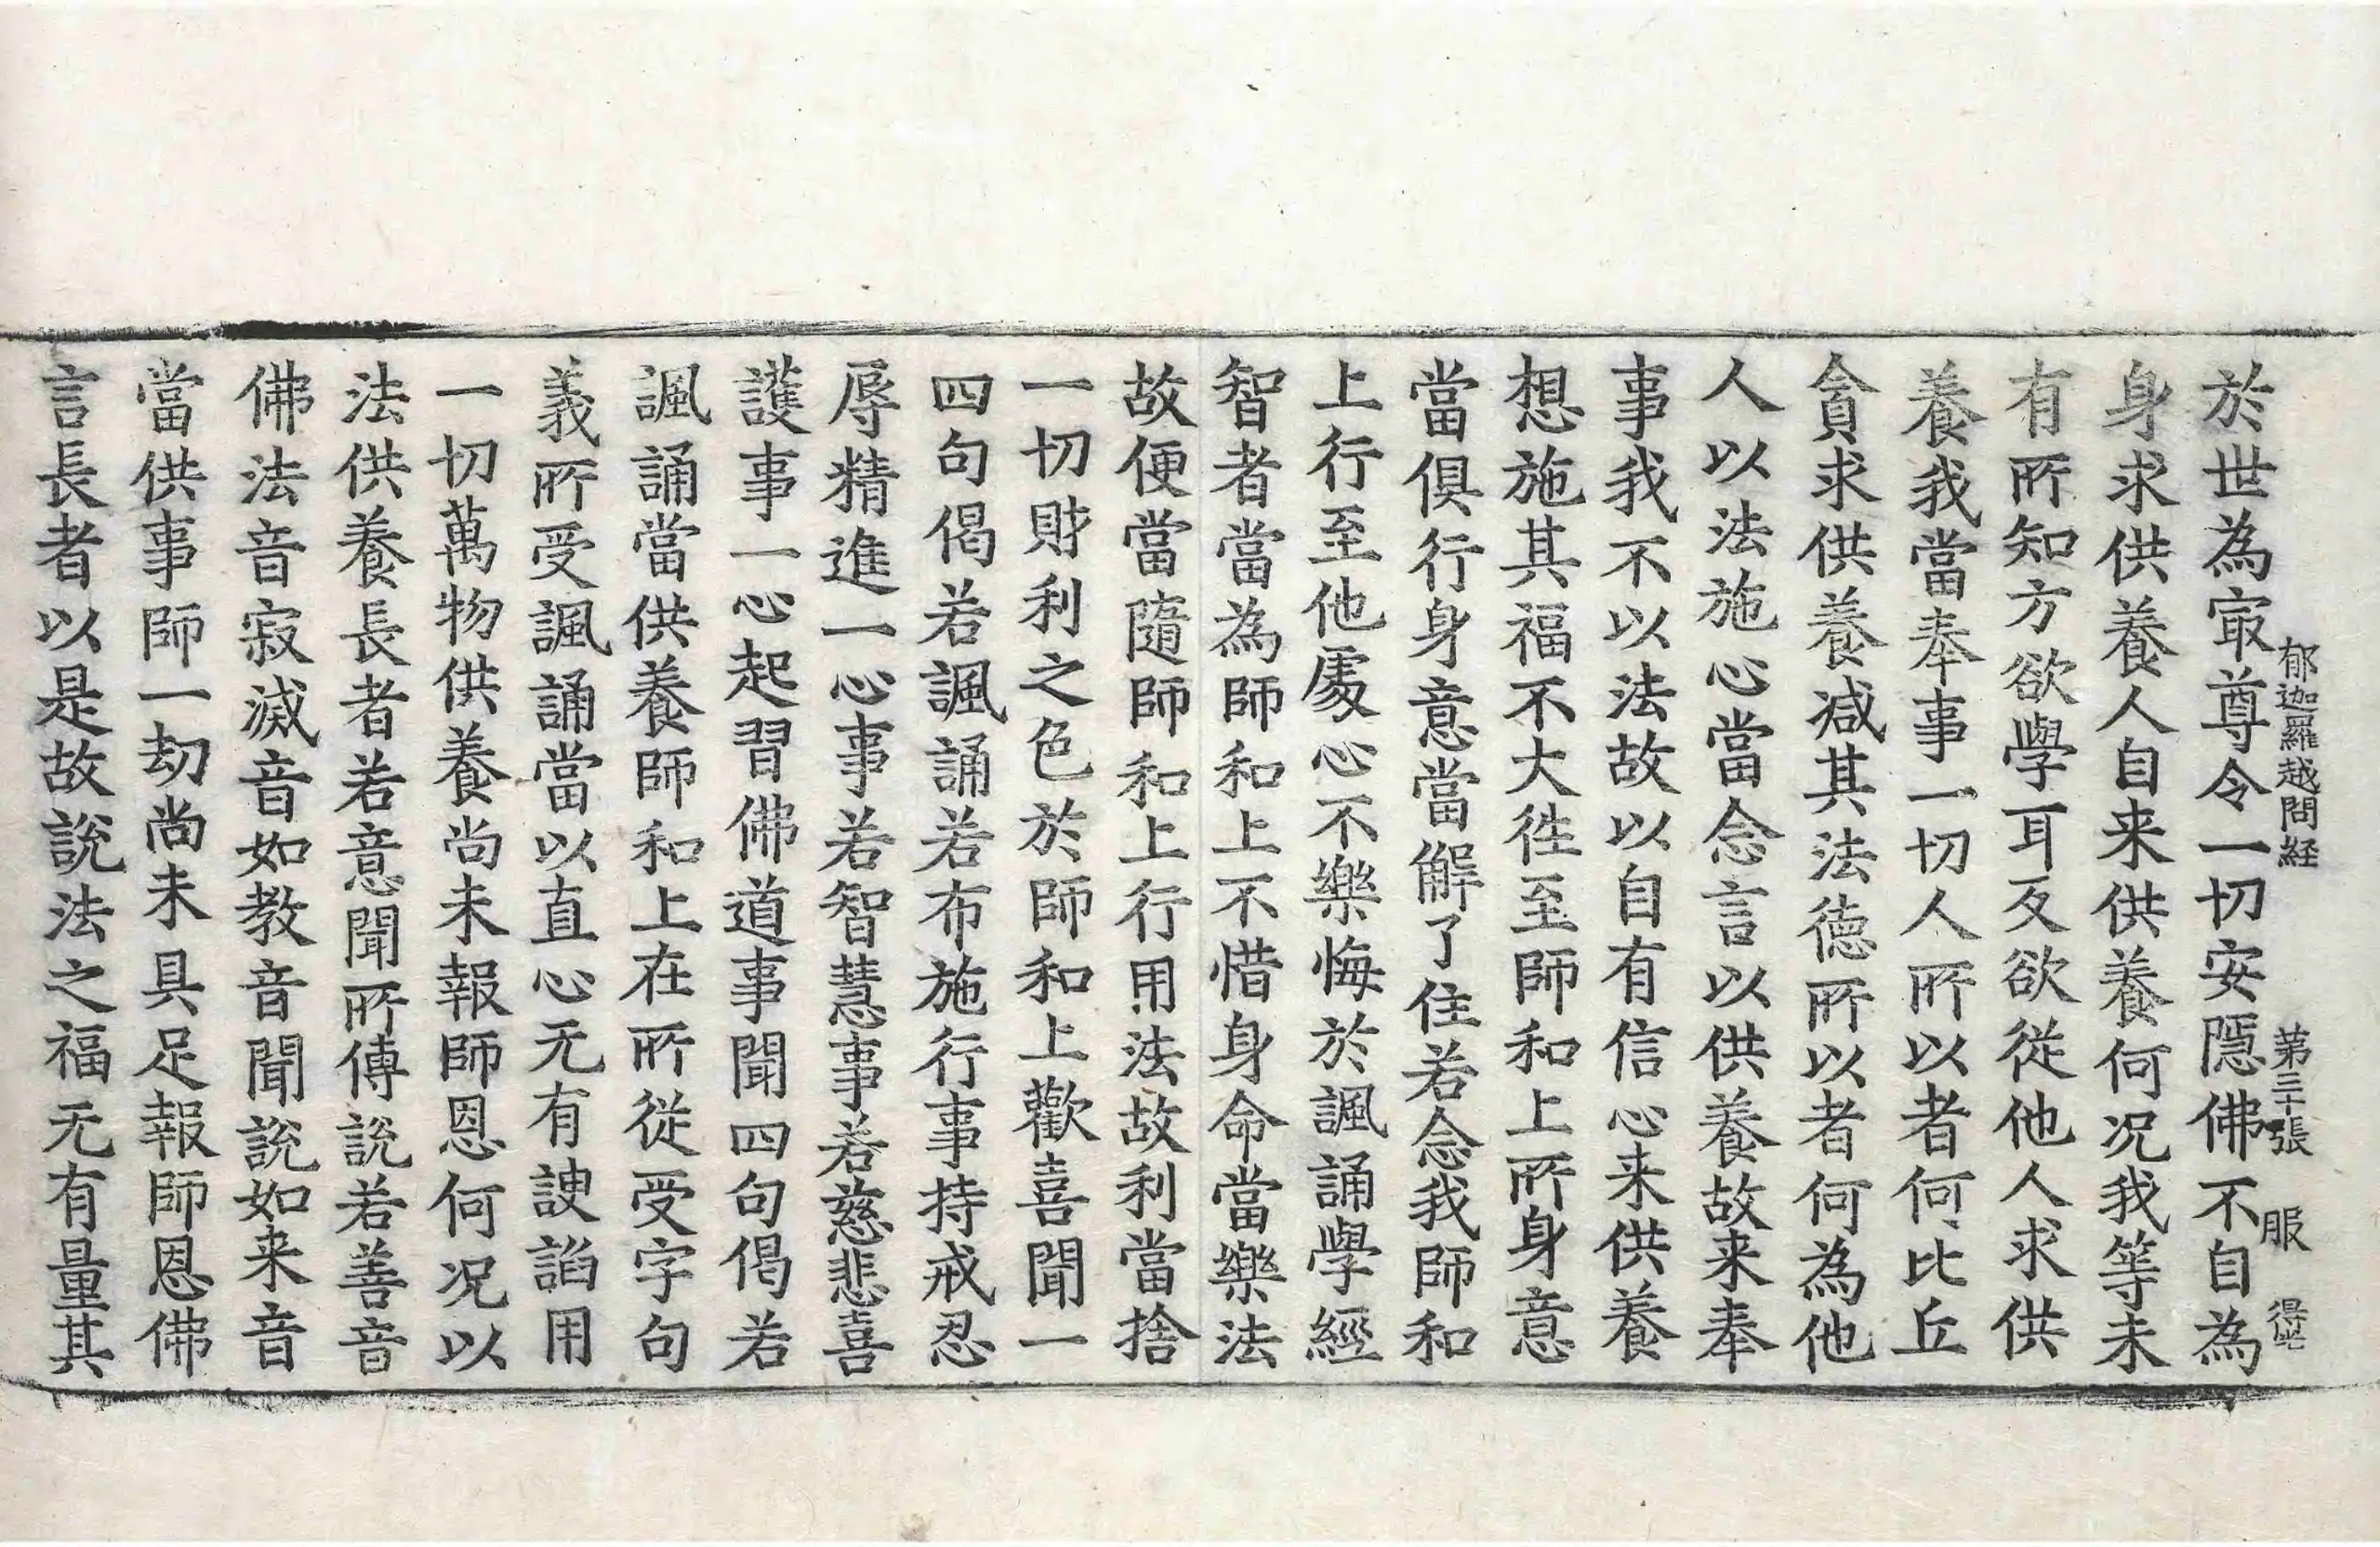 郁迦羅越問経 第三十張 服
於世為㝡尊令一切安隱佛不自為
身求供養人自来供養何况我等未
有所知方欲學耳反欲從他人求供
養我當奉事一切人所以者何比丘
貪求供養减其法德所以者何為他
人以法施心當念言以供養故来奉
事我不以法故以自有信心来供養
想施其福不大徃至師和上所身意
當俱行身意當解了住若念我師和
上行至他處心不樂悔於諷誦學經
智者當為師和上不惜身命當樂法
故便當隨師和上行用法故利當捨
一切財利之色於師和上歡喜聞一
四句偈若諷誦若布施行事持戒忍
辱精進一心事若智慧事若慈悲喜
護事一心起習佛道事聞四句偈若
諷誦當供養師和上在所從受字句
義所受諷誦當以直心无有諛諂用
一切萬物供養尚未報師恩何况以
法供養長者若意聞所傳說若善音
佛法音寂滅音如教音聞說如来音
當供事師一劫尚未具足報師恩佛
言長者以是故說法之福无有量其